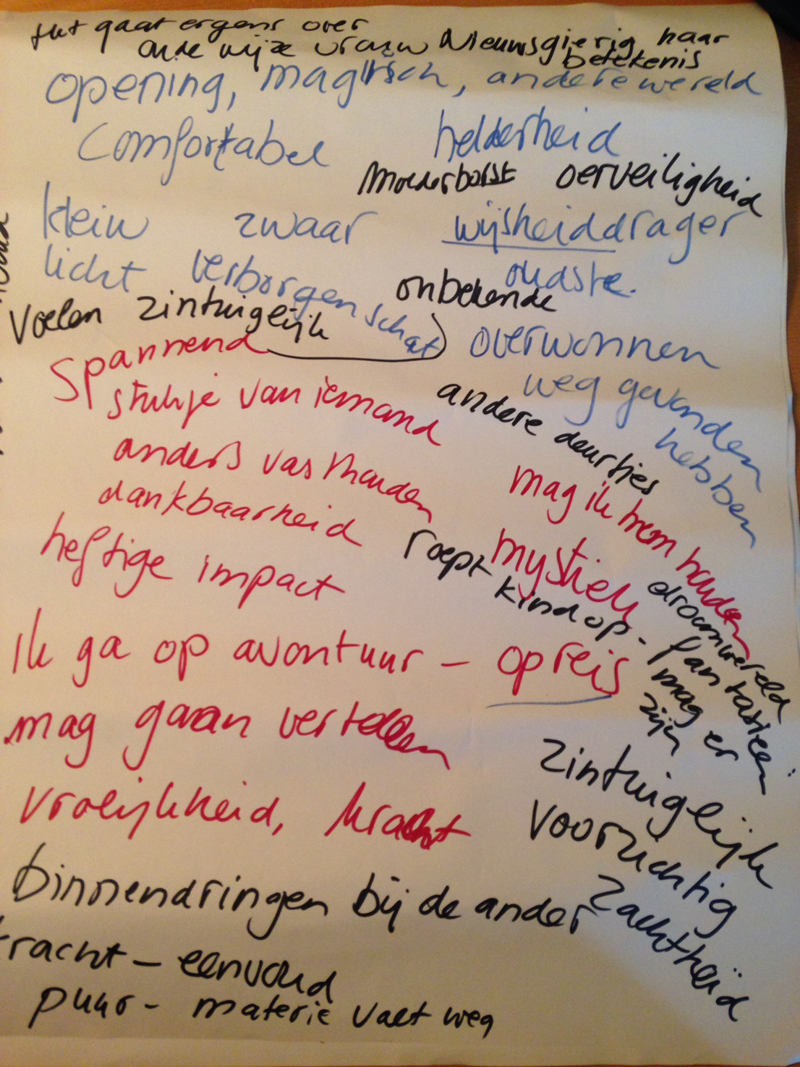 Het gaat ergens over
oude wijze vrouw Nieuwsgierig naar
betekenis
opening, magisch, andere wereld
Comfortabel helderheid
Moederborst oerveiligheid
klein zwaar wijsheiddrager
licht verborgen schat oudste.
Voelen zintuigelijk onbekende
Spannend overwonnen
weg gevonden
hebben
stukje van iemand andere deurtjes
anders vasthouden mag ik hem houden
dankbaarheid mystiek
heftige impact roept kind op - fantasieën
droomwereld
mag er
zijn
ik ga op avontuur - op reis
mag gaan vertellen
zintuigelijk
vrolijkheid, kracht voorzichtig
binnendringen bij de ander zachtheid
kracht - eenvoud
puur - materie valt weg